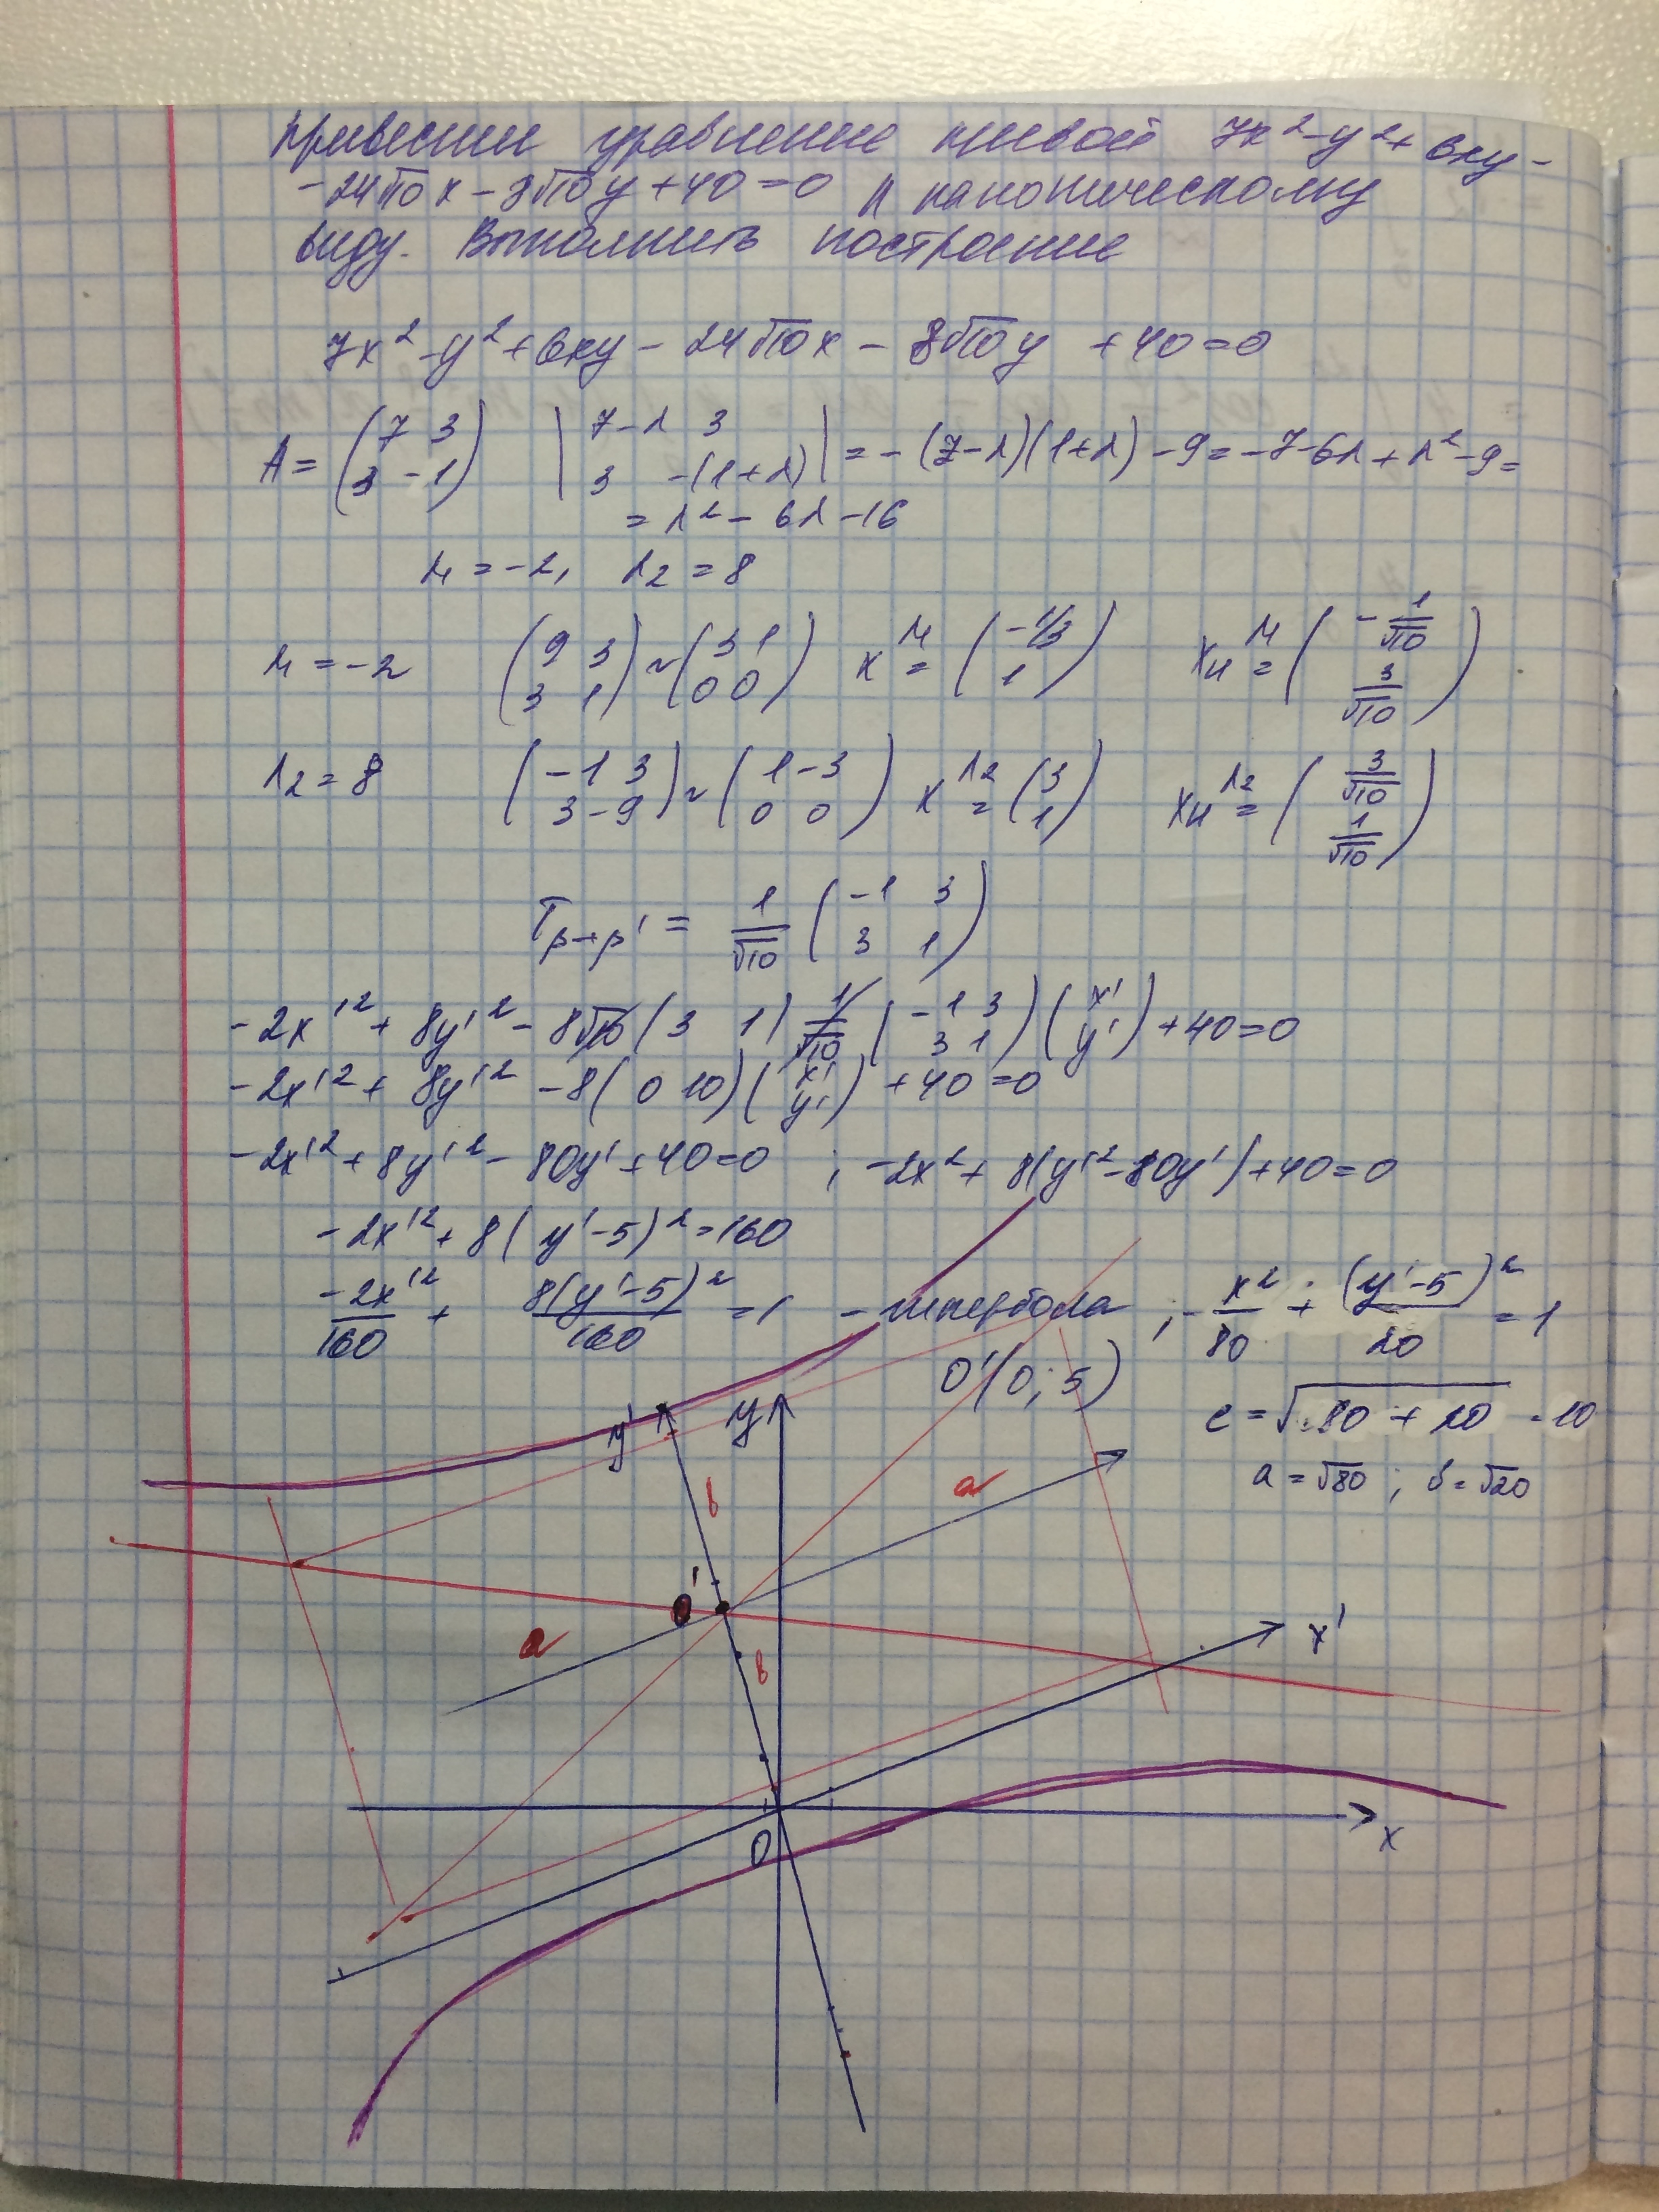 Привести уравнение кривой 7x² - y² + 6xy -
- 24√10 x - 8√10 y + 40 = 0 к каноническому
виду. Выполнить построение
7x² - y² + 6xy - 24√10 x - 8√10 y + 40 = 0
A = (7 3; 3 -1) |7-λ 3; 3 -(1+λ)| = -(7-λ)(1+λ) - 9 = -7-6λ+λ²-9 =
= λ² - 6λ - 16
λ₁ = -2, λ₂ = 8
λ₁ = -2 (9 3; 3 1) ~ (3 1; 0 0) x^λ₁ = (-1/3; 1) xн^λ₁ = (-1/√10; 3/√10)
λ₂ = 8 (-1 3; 3 -9) ~ (1 -3; 0 0) x^λ₂ = (3; 1) xн^λ₂ = (3/√10; 1/√10)
T β→β' = 1/√10 (-1 3; 3 1)
-2x'² + 8y'² - 8√10 (3 1) 1/√10 (-1 3; 3 1)(x'; y') + 40 = 0
-2x'² + 8y'² - 8(0 10)(x'; y') + 40 = 0
-2x'² + 8y'² - 80y' + 40 = 0 ; -2x² + 8(y'² - 10y') + 40 = 0
-2x'² + 8(y'-5)² = 160
-2x'²/160 + 8(y'-5)²/160 = 1 - гипербола ; - x²/80 + (y'-5)²/20 = 1
O'(0; 5)
c = √(80 + 20) = 10
a = √80 ; b = √20
y'
y
b
a
O'
a
b
x'
O
x